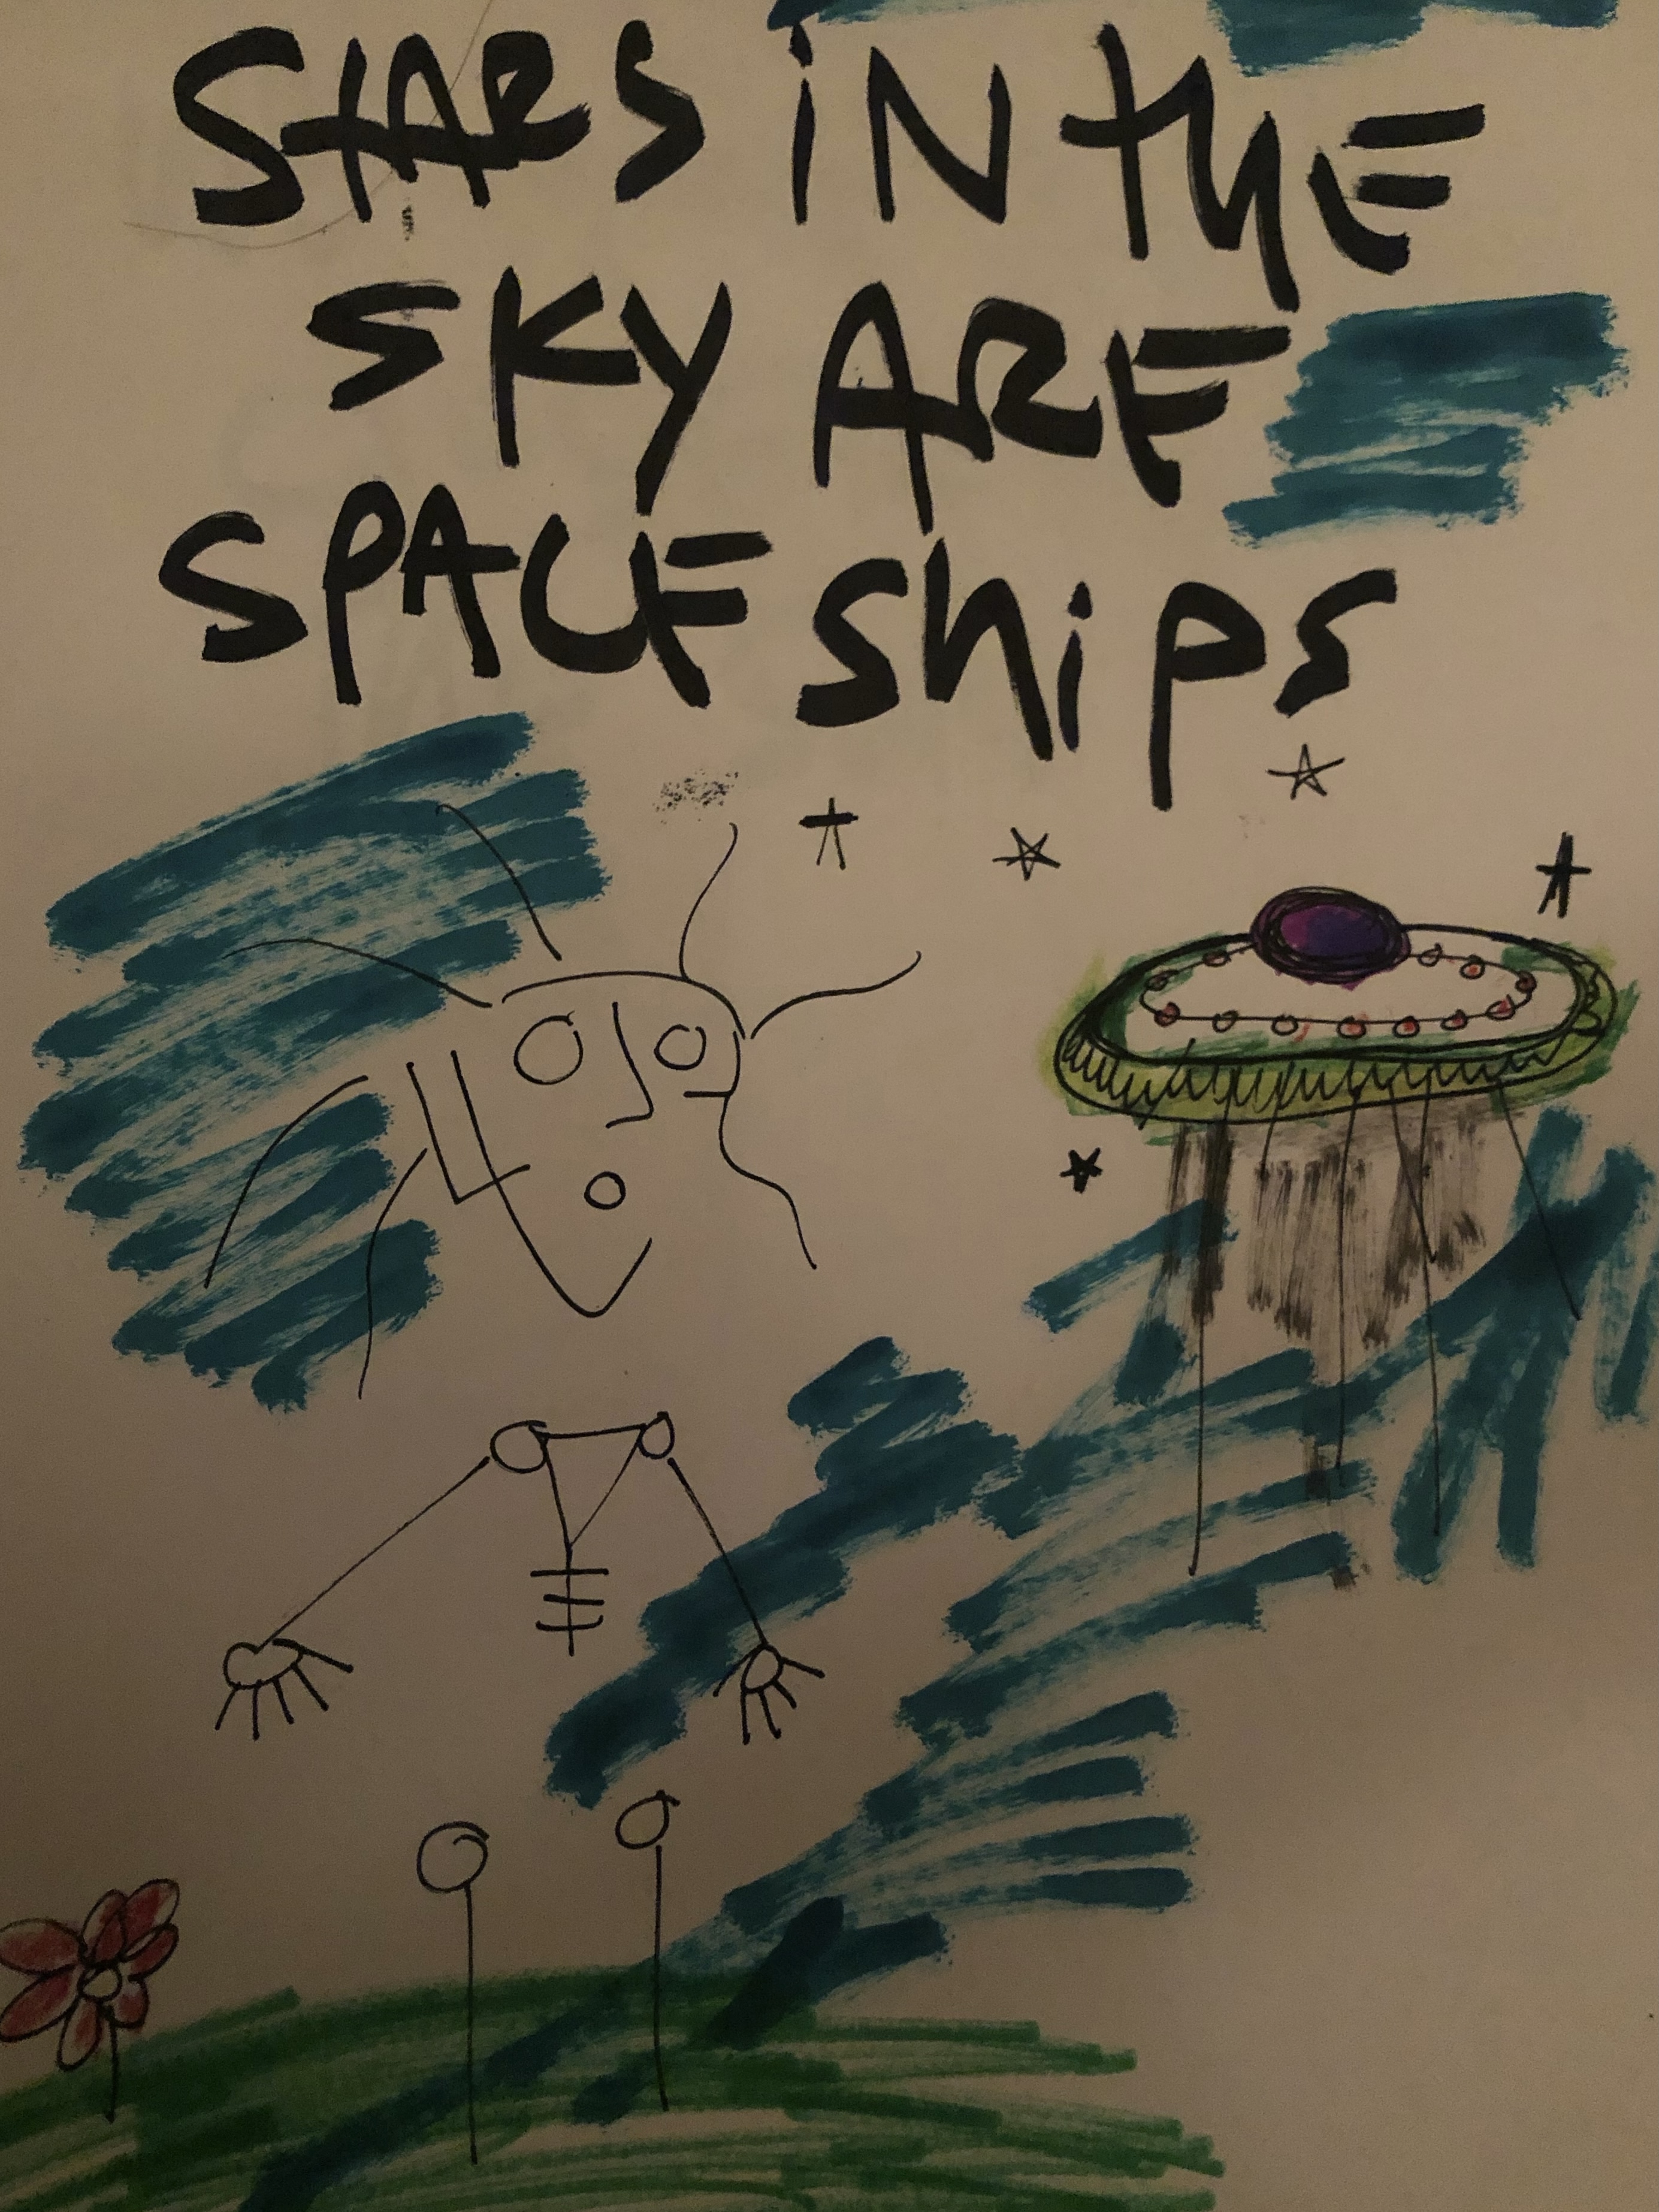 STARS iN thE
SKY ARE
SPACE Ships